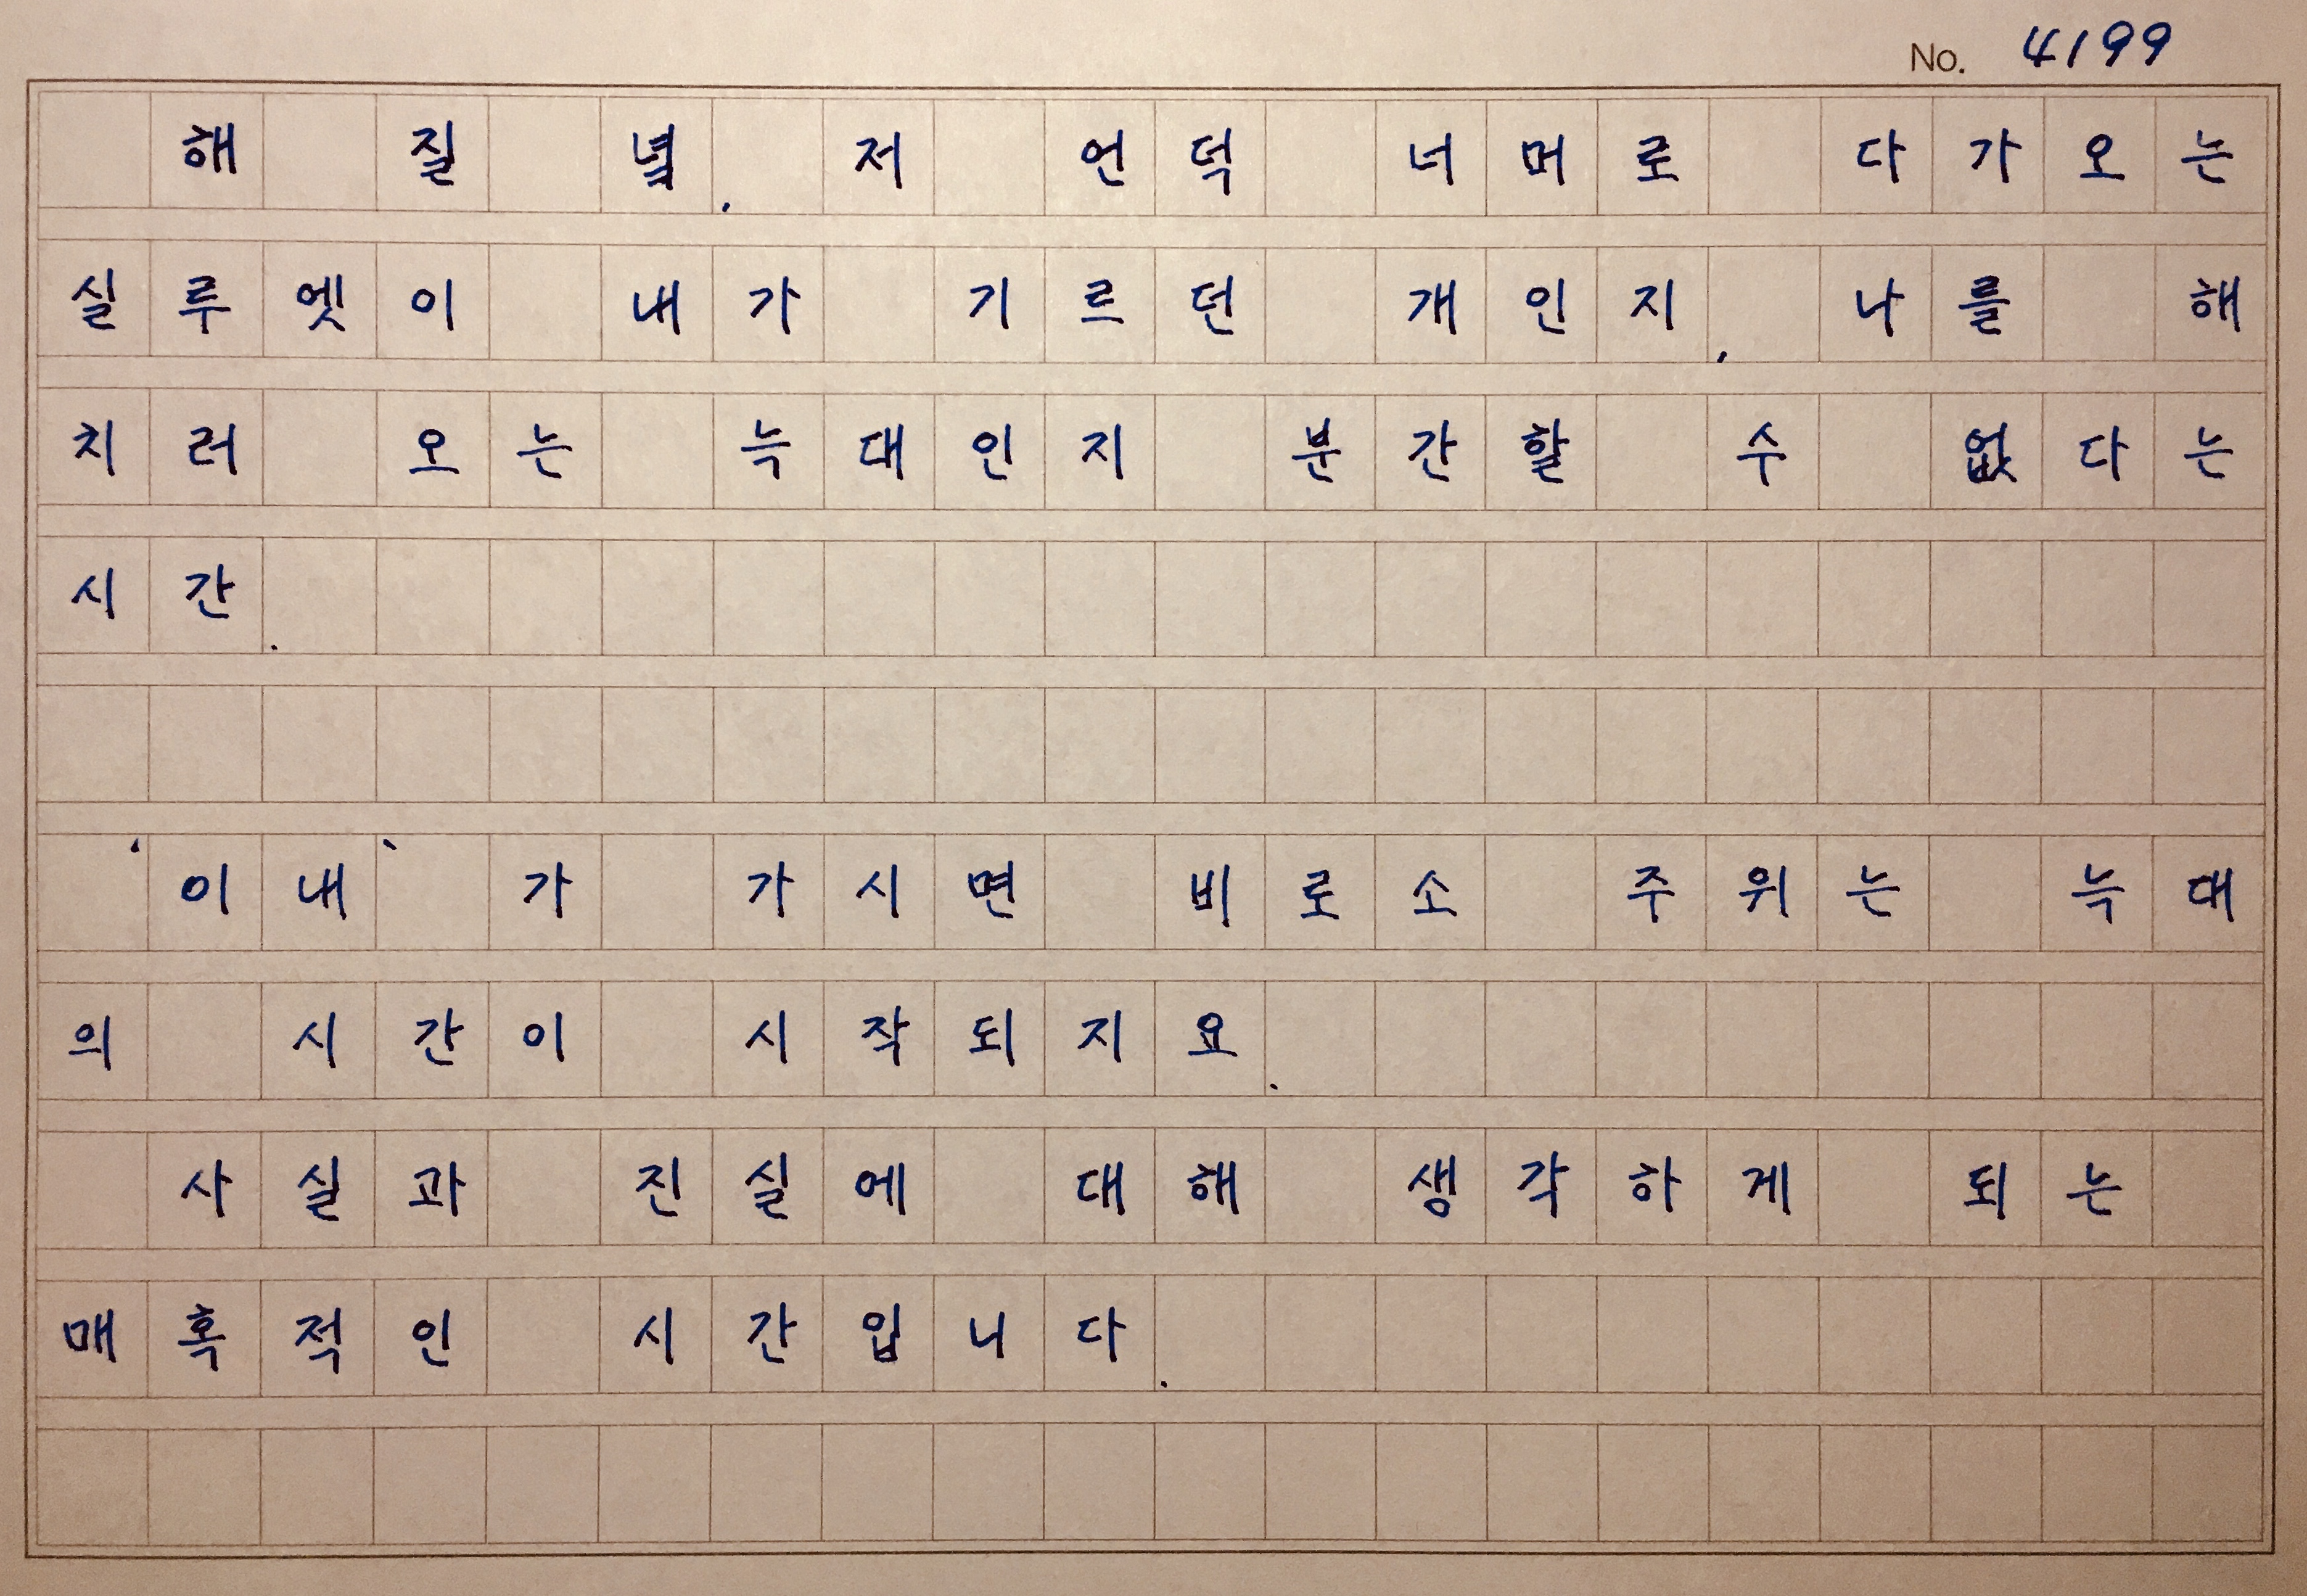 No. 4199
해 질 녘, 저 언덕 너머로 다가오는
실루엣이 내가 기르던 개인지, 나를 해
치러 오는 늑대인지 분간할 수 없다는
시간.
‘이내’가 가시면 비로소 주위는 늑대
의 시간이 시작되지요.
사실과 진실에 대해 생각하게 되는
매혹적인 시간입니다.